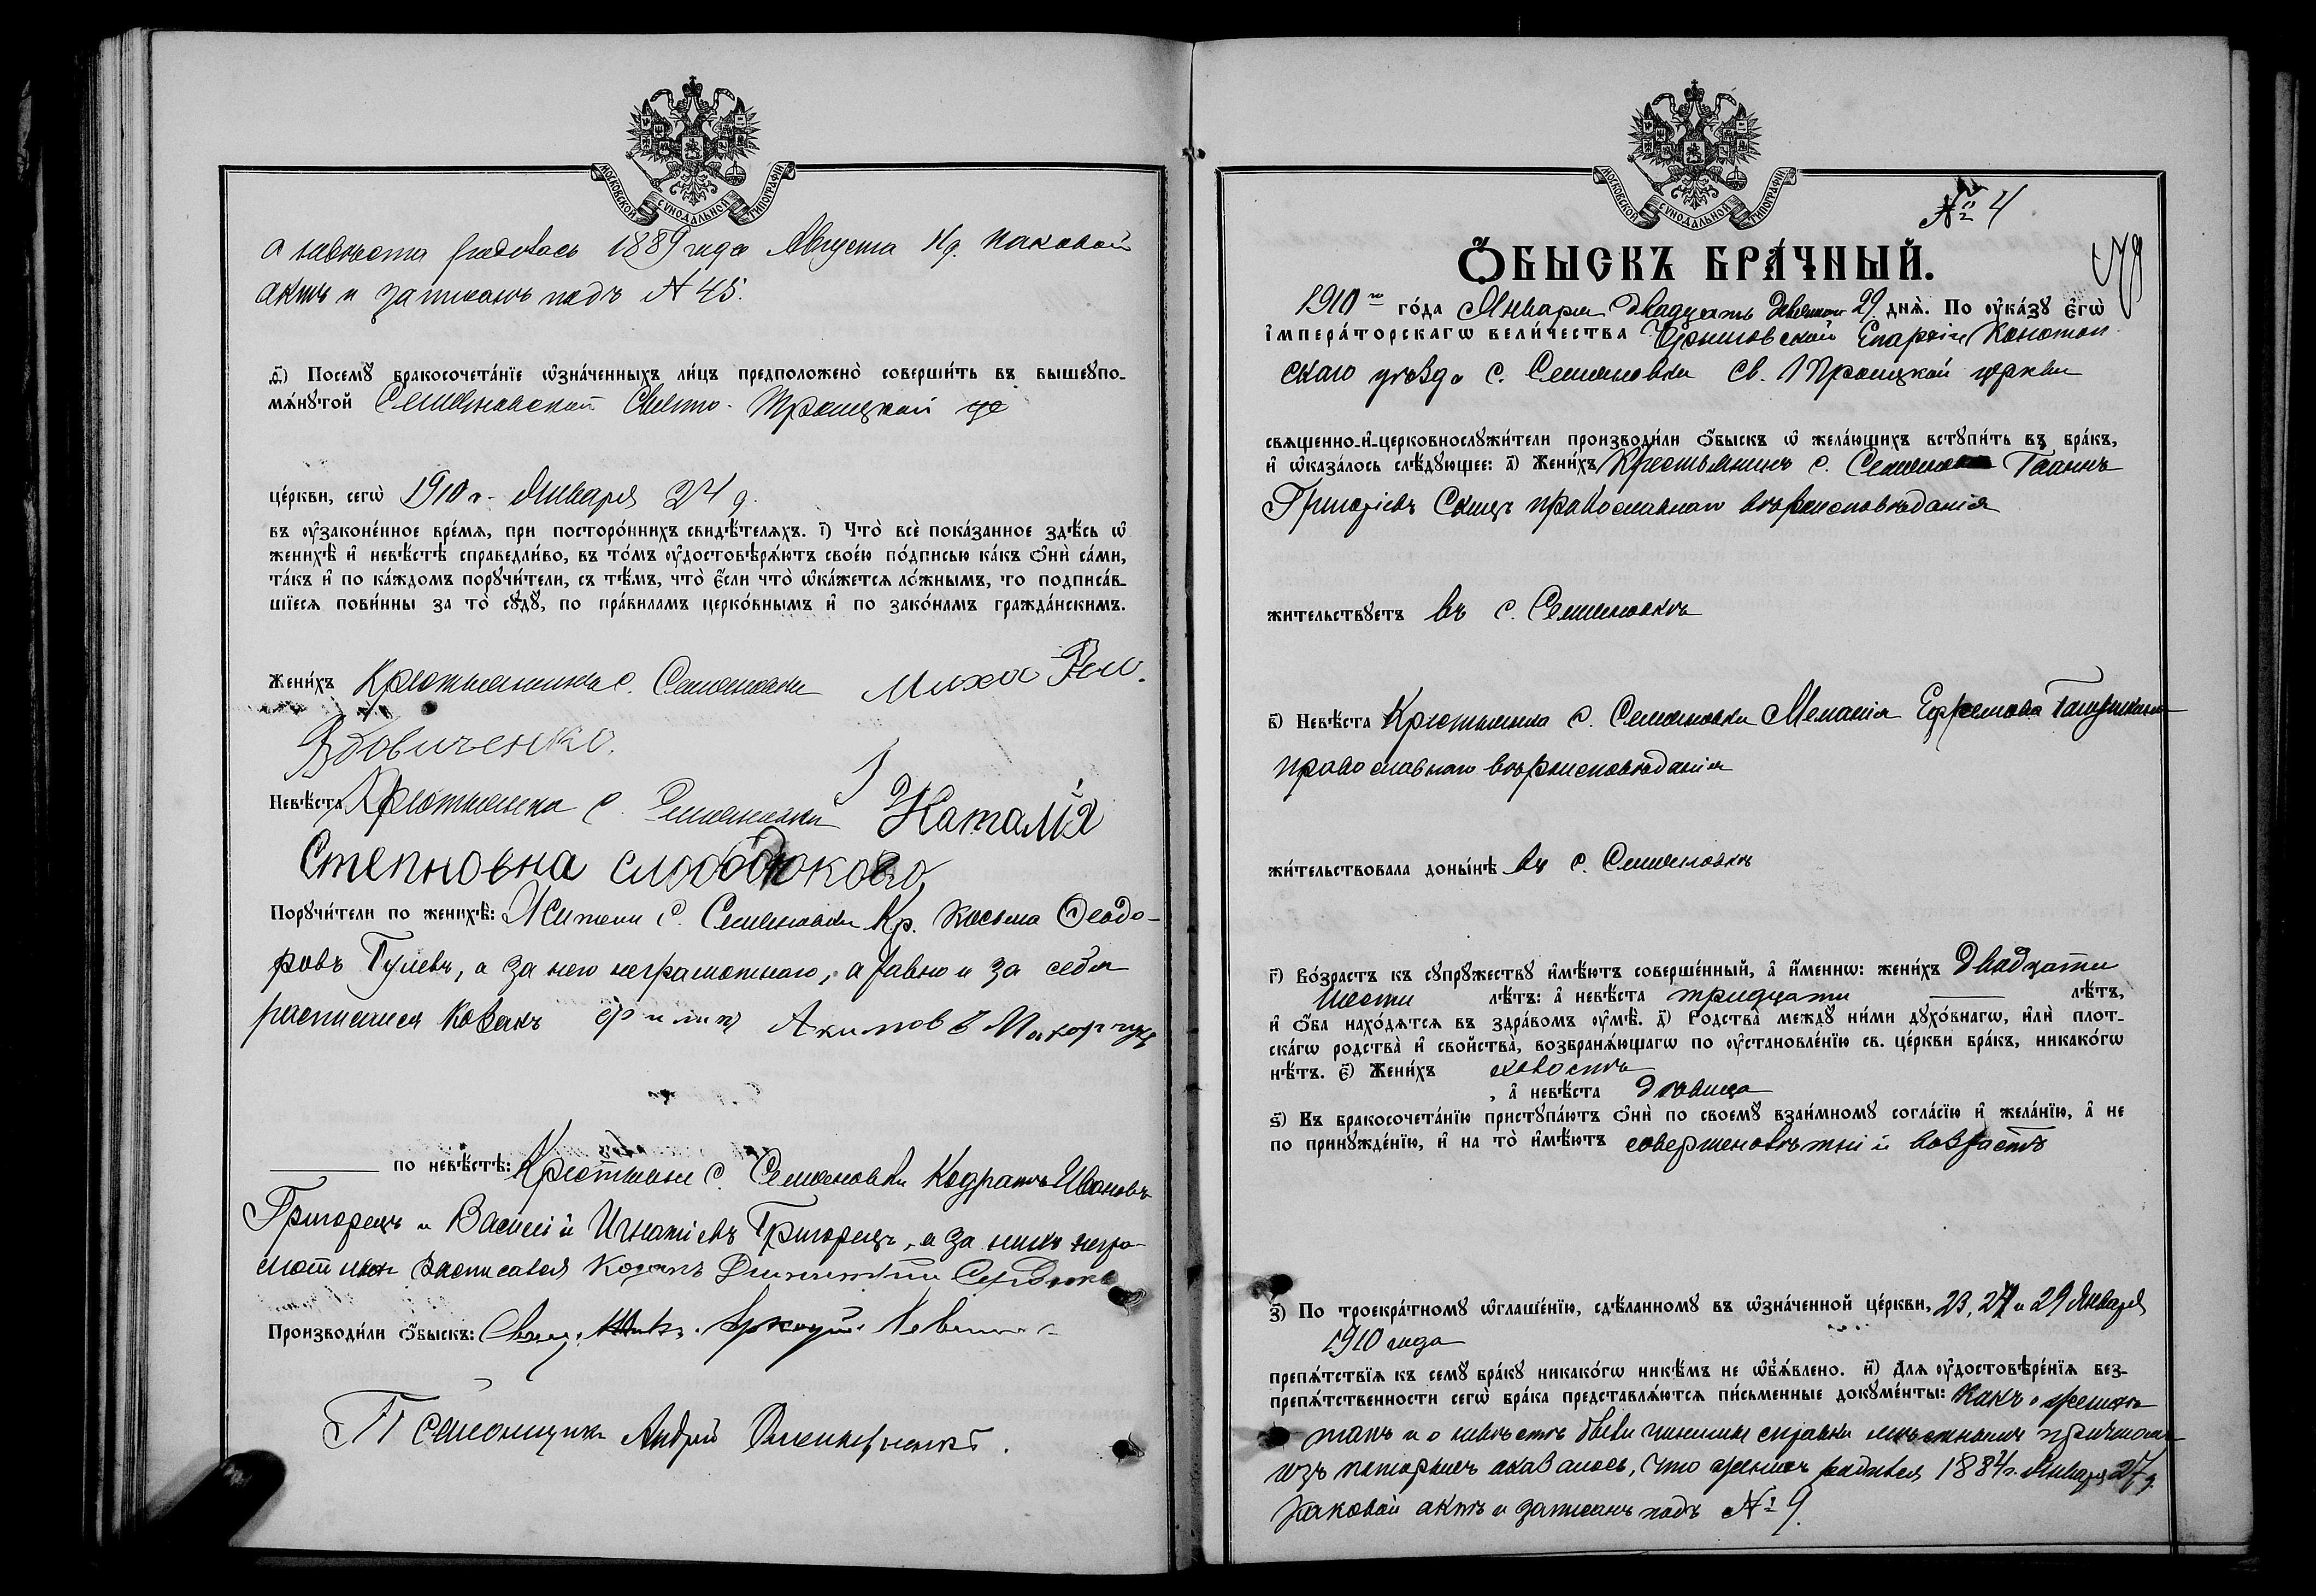 МОСКОВСКОЙ СѴНОДАЛЬНОЙ ТИПОГРАФІИ
а невѣста родилась 1889 года Августа 4 д. каковой
актъ и записанъ подъ № 45.
д҃) Посемꙋ бракосочета́нїе ѡ҆зна́ченныхъ ли́цъ предположено̀ соверши́ть въ вышеꙋпо-
мѧ́нꙋтой Семеновской Свято-Троицкой
це́ркви, сегѡ̀ 1910 г. Января 24 д.
въ ᲂу҆законе́нное вре́мѧ, при посторо́ннихъ свидѣ́телѧхъ. і҃) Что̀ всѐ пока́занное здѣ́сь ѡ҆
женихѣ̀ и҆ невѣ́стѣ справедли́во, въ то́мъ ᲂу҆достовѣрѧ́ютъ свое́ю по́дписью ка́къ ѻ҆нѝ са́ми,
та́къ и҆ по ка́ждомъ порꙋчи́тели, съ тѣ́мъ, что̀ є҆́сли что̀ ѡ҆ка́жетсѧ ло́жнымъ, то подписа́в-
шїесѧ пови́нны за то̀ сꙋдꙋ̀, по пра́виламъ церко́внымъ и҆ по зако́намъ гражда́нскимъ.
Жени́хъ Крестьянинъ с. Семеновки
Вдовиченко.
Невѣ́ста Крестьянка с. Семеновки Наталія
Степновна слободюкова
Порꙋчи́тели по женихѣ̀: Жители с. Семеновки Кр. Косьма Ѳеодо-
ровъ Гулевъ, а за него неграмотнаго, а равно и за себя
расписался козакъ Филипъ Акимовъ
по невѣ́стѣ: Крестьяне с. Семеновки Кодратъ Ивановъ
Григорецъ и Василій Игнатіевъ Григорецъ, а за нихъ негра-
мотныхъ расписался козакъ
Производи́ли ѻ҆́быскъ: Свящ.
Псаломщикъ Андрей
МОСКОВСКОЙ СѴНОДАЛЬНОЙ ТИПОГРАФІИ
№ 4
Ѻ҆́БЫСКЪ БРА́ЧНЫЙ.
1910 го́да Января двадцать девятаго 29 днѧ̀. По ᲂу҆ка́зꙋ є҆гѡ̀
і҆мпера́торскагѡ вели́чества Черниговской Епархіи Конотоп
скаго уѣзда с. Семеновки Св. Троицкой церкви
свѧщенно-и҆-церковнослꙋжи́тели производи́ли ѻ҆́быскъ ѡ҆ жела́ющихъ встꙋпи́ть въ бра́къ,
и҆ ѡ҆каза́лось слѣ́дꙋющее: а҃) Жени́хъ Крестьянинъ с.
Григоріевъ православнаго вѣроисповѣданія
жительствꙋетъ въ с. Семеновкѣ
в҃) Невѣ́ста Крестьянка с. Семеновки Меланія Ефремова
православнаго вѣроисповѣданія
жи́тельствовала доны́нѣ въ с. Семеновкѣ
г҃) Во́зрастъ къ сꙋпрꙋ́жествꙋ и҆мѣ́ютъ соверше́нный, а҆ и҆́менно: жени́хъ двадцати
шести лѣ́тъ: а҆ невѣ́ста тридцати лѣ́тъ,
и҆ ѻ҆́ба нахо́дѧтсѧ въ здра́вомъ ᲂу҆мѣ̀. д҃) Родства̀ междꙋ̀ ни́ми дꙋхо́внагѡ, и҆лѝ плот-
ска́гѡ родства̀ и҆ свойства̀, возбранѧ́ющагѡ по ᲂу҆становле́нїю св. це́ркви бра́къ, никако́гѡ
нѣ́тъ. є҃) Жени́хъ холостъ
, а҆ невѣ́ста дѣвица
ѕ҃) Къ бракосочета́нїю пристꙋпа́ютъ ѻ҆нѝ по своемꙋ̀ взаи́мномꙋ согла́сїю и҆ жела́нїю, а҆ не
по принꙋжде́нїю, и҆ на то̀ и҆мѣ́ютъ совершеннолѣтній возрастъ
з҃) По троекра́тномꙋ ѡ҆глаше́нїю, сдѣ́ланномꙋ въ ѡ҆зна́ченной це́ркви, 23, 24 и 29 Января
1910 года
препѧ́тствїѧ къ семꙋ̀ бра́кꙋ никако́гѡ никѣ́мъ не ѡ҆б̾ѧ́влено. и҃) Длѧ ᲂу҆достовѣре́нїѧ без-
препѧ́тственности сегѡ̀ бра́ка представлѧ́ютсѧ пи́сьменные докꙋме́нты: какъ о женихѣ
такъ и о невѣстѣ были чинимы справки мѣстнымъ причтомъ
изъ которыхъ оказалось, что женихъ родился 1884 г. Января 27 д.
каковой актъ и записанъ подъ № 9